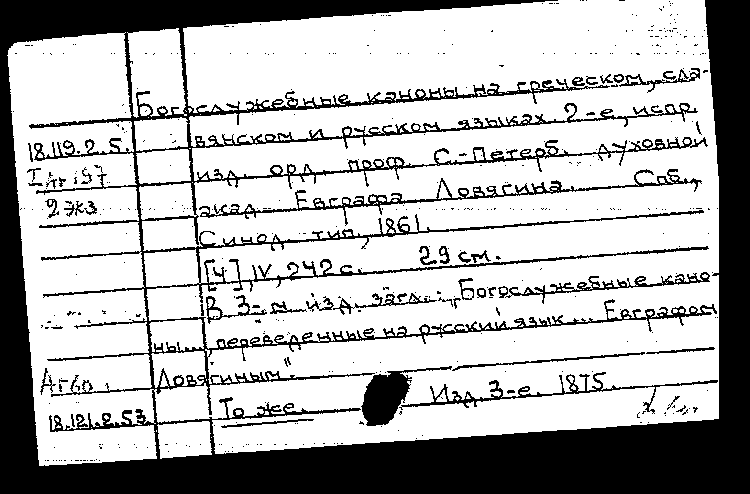 Богослужебные каноны на греческом, сла-
18.119.2.5. вянском и русском языках. 2-е, испр.
изд. орд. проф. С.-Петерб. духовной
2 экз акад. Евграфа Ловягина. Спб.,
Синод. тип., 1861.
[4], IV, 242 с. 29 см.
В 3-м изд. загл.: „Богослужебные кано-
ны..., переведенные на русский язык... Евграфом
Ловягиным".
18.121.2.53. То же. Изд. 3-е. 1875.